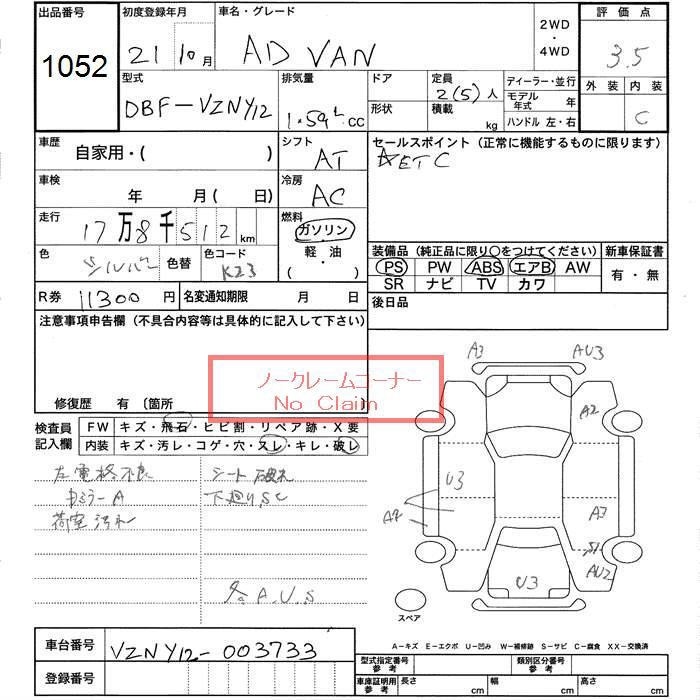 出品番号 初度登録年月 車名・グレード 2WD・4WD 評価点
1052 21 10月 AD VAN 3.5
型式 排気量 ドア 定員 ディーラー・並行 外装 内装
DBF-VZNY12 1.59L CC 形状 2(5)人 積載 kg モデル年式 年 ハンドル 左・右 C
車歴 自家用・( ) シフト AT セールスポイント(正常に機能するものに限ります)
ETC
車検 年 月( 日) 冷房 AC
走行 17万8千512km 燃料 ガソリン 軽・油 ( )
色 シルバー 色替 色コード K23
装備品(純正品に限り○をつけてください) 新車保証書
PS PW ABS エアB AW 有・無
SR ナビ TV カワ
R券 11300円 名変通知期限 月 日 後日品
注意事項申告欄(不具合内容等は具体的に記入して下さい)
ノークレームコーナー
No Claim
修復歴 有(箇所 )
検査員記入欄 FW キズ・飛石・ヒビ割・リペア跡・X要
内装 キズ・汚レ・コゲ・穴・スレ・キレ・破レ
左電格不良 シート破れ
ミラーA 下廻りSC
荷室汚れ
各A.U.S
A3 AU3
A2
U3
A2 A3
S1
AU2
U3
スペア
A-キズ E-エクボ U-凹み W-補修跡 S-サビ C-腐食 XX-交換済
車台番号 VZNY12-003733
登録番号
型式指定番号 参考 類別区分番号 参考
車庫証明用 参考 長さ cm 幅 cm 高さ cm